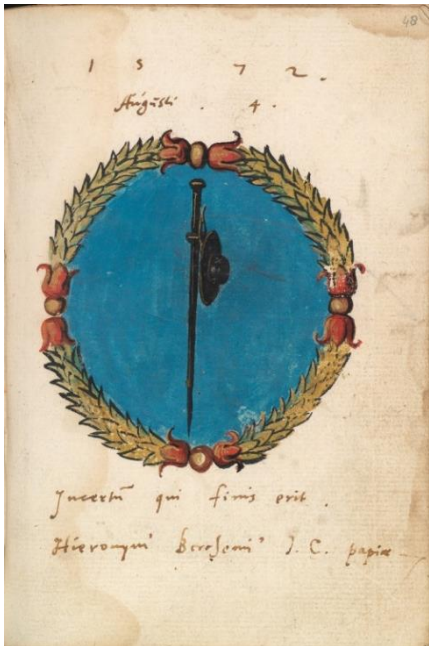 48
1572.
Augusti . 4.
Incertũ qui finis erit .
Hieronymi J. C. papiæ